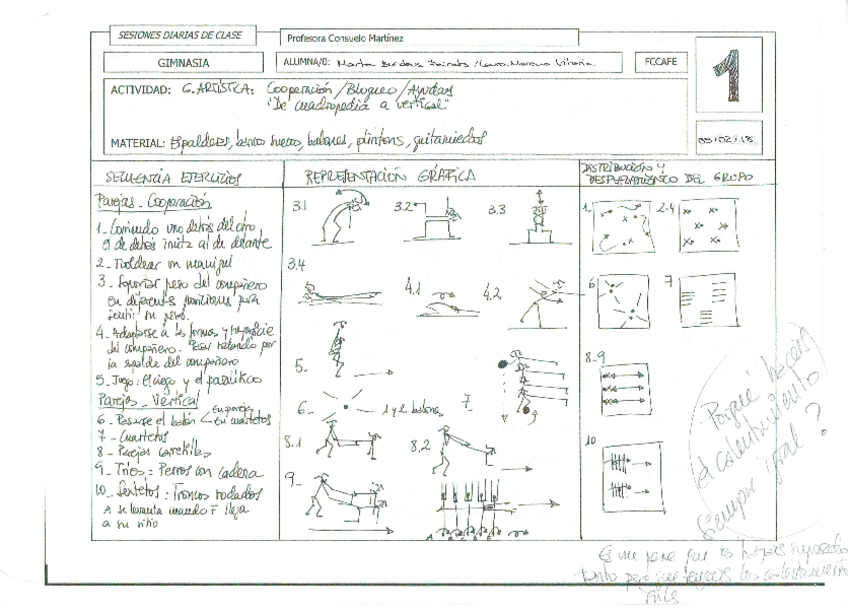 SESIONES DIARIAS DE CLASE
Profesora Consuelo Martínez
GIMNASIA
ALUMNA/O:
FCCAFE
1
ACTIVIDAD: G. ARTÍSTICA: Cooperación/Bloqueo/Ayudas
"De cuadrupedia a vertical"
MATERIAL: Espalderas, banco sueco, balones, plintons, quitamiedos
SECUENCIA EJERCICIOS
REPRESENTACIÓN GRÁFICA
DISTRIBUCIÓN Y
DESPLAZAMIENTO DEL GRUPO
Parejas - Cooperación
1- Corriendo uno detrás del otro
el de detrás imita al de delante
2- Moldear un maniquí
3- Soportar peso del compañero
en diferentes posiciones para
sentir su peso.
4- Adaptarse a la forma y superficie
del compañero. Pasar rodando por
la espalda del compañero
5- Juego: El ciego y el paralítico
Parejas - Vertical
6- Pasarse el balón
En parejas
En cuartetos
7- Cuartetos
8- Parejas carretillas
9- Tríos: Perros con cadera
10- Sextetos: Troncos rodados
A se levanta cuando F llega
a su sitio
3.1
3.2
3.3
3.4
4.1
4.2
5-
6-
1 y 2 balones
7-
8.1
8.2
9-
1-
2-4
6
7
8-9
10
Porqué hacéis
el calentamiento
siempre igual?